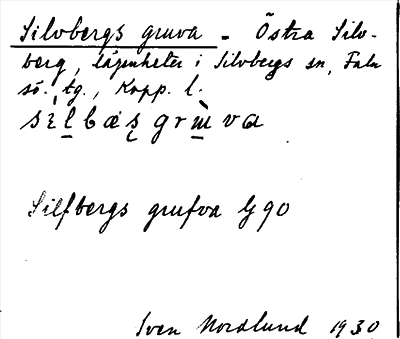 Silvbergs gruva - Östra Silv-
berg, lägenheter i Silvbergs sn, Falu
sö. tg., Kopp. l.
Silfbergs grufva G 90
Sven Nordlund 1930